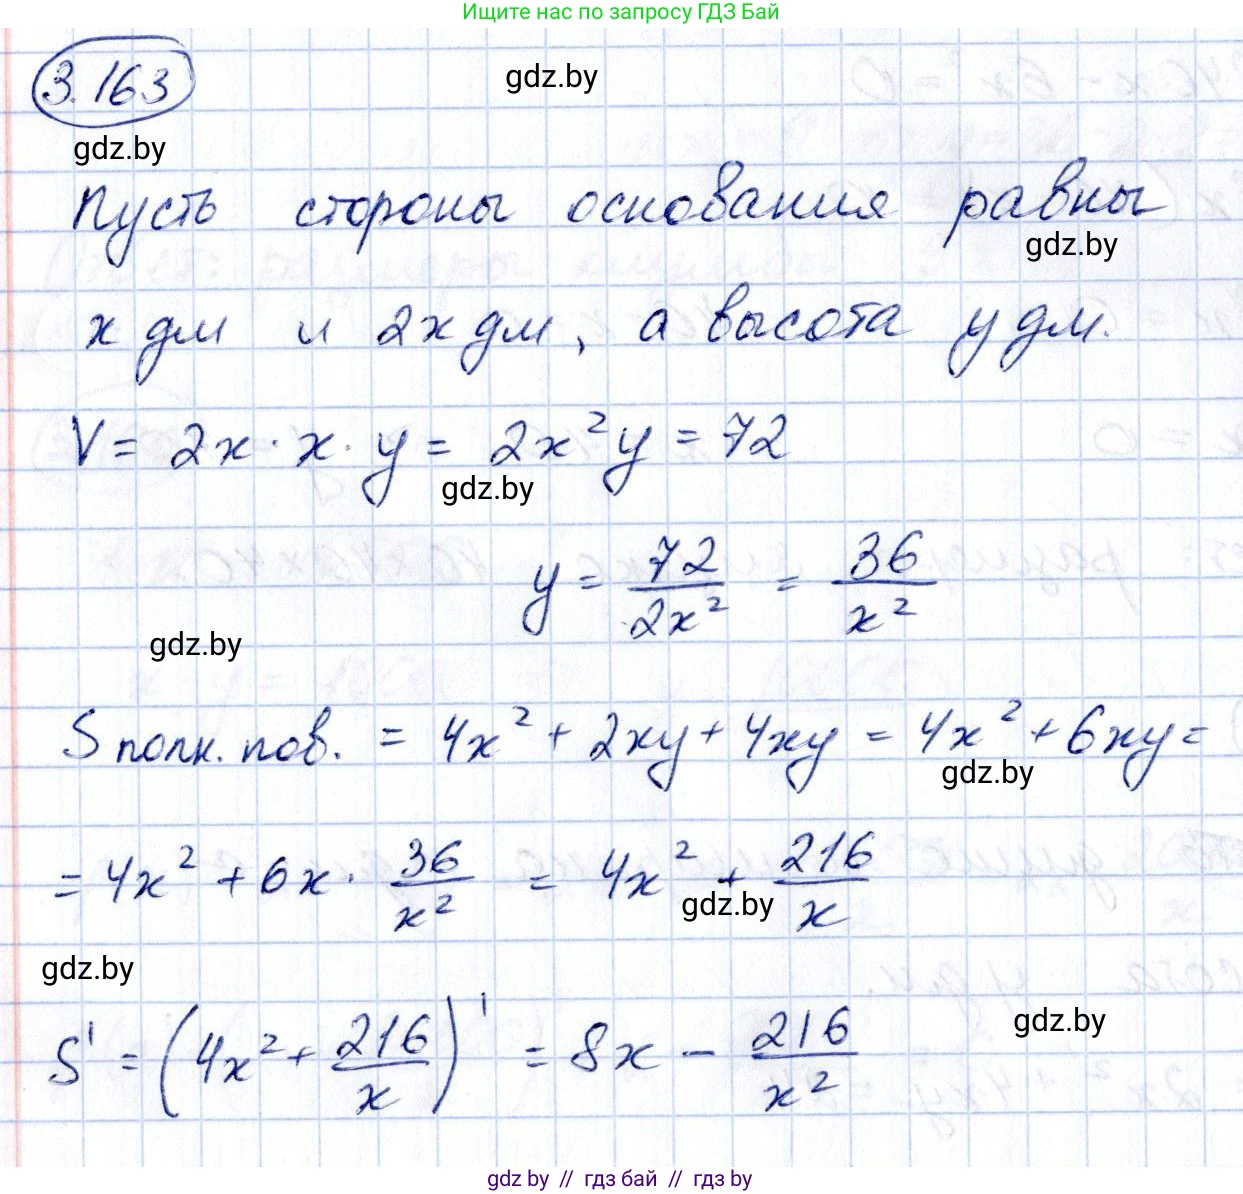 Ищите нас по запросу ГДЗ Бай
3.163
gdz.by
gdz.by
Пусть стороны основания равны
gdz.by
x дм и 2x дм, а высота y дм.
V = 2x · x · y = 2x²y = 72
gdz.by
y = 72/2x² = 36/x²
gdz.by
S полн. пов. = 4x² + 2xy + 4xy = 4x² + 6xy =
gdz.by
= 4x² + 6x · 36/x² = 4x² + 216/x
gdz.by
gdz.by
gdz.by
S' = (4x² + 216/x)' = 8x - 216/x²
gdz.by // гдз бай // гдз.by